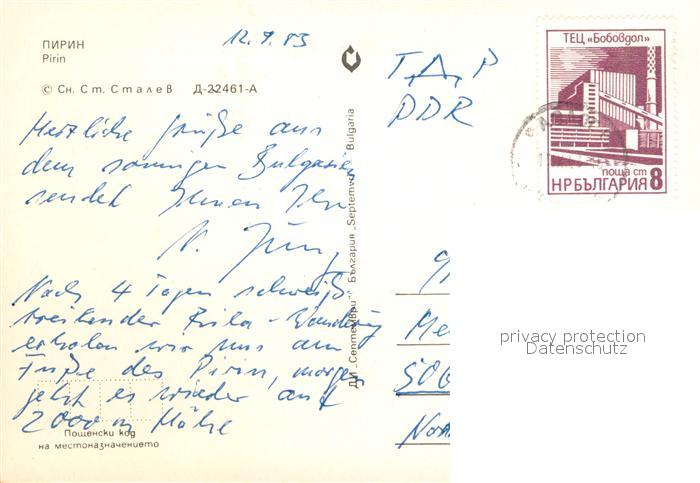 ПИРИН
Pirin
© Сн. Ст. Сталев Д-22461-А
12.9.83
Herzliche Grüße aus
dem sonnigen Bulgarien
sendet Ihnen Ihr
N.
Nach 4 Tagen schweiß-
treibender Rila-Wanderung
erholen wir uns am
Fuße des Pirin, morgen
geht es wieder auf
2000 m Höhe
Пощенски код
на местоназначението
ДИ „Септември" България „Septemvri" Bulgaria
ГДР
DDR
ТЕЦ «Бобовдол»
поща ст
НРБЪЛГАРИЯ 8
Me
506
privacy protection
Datenschutz